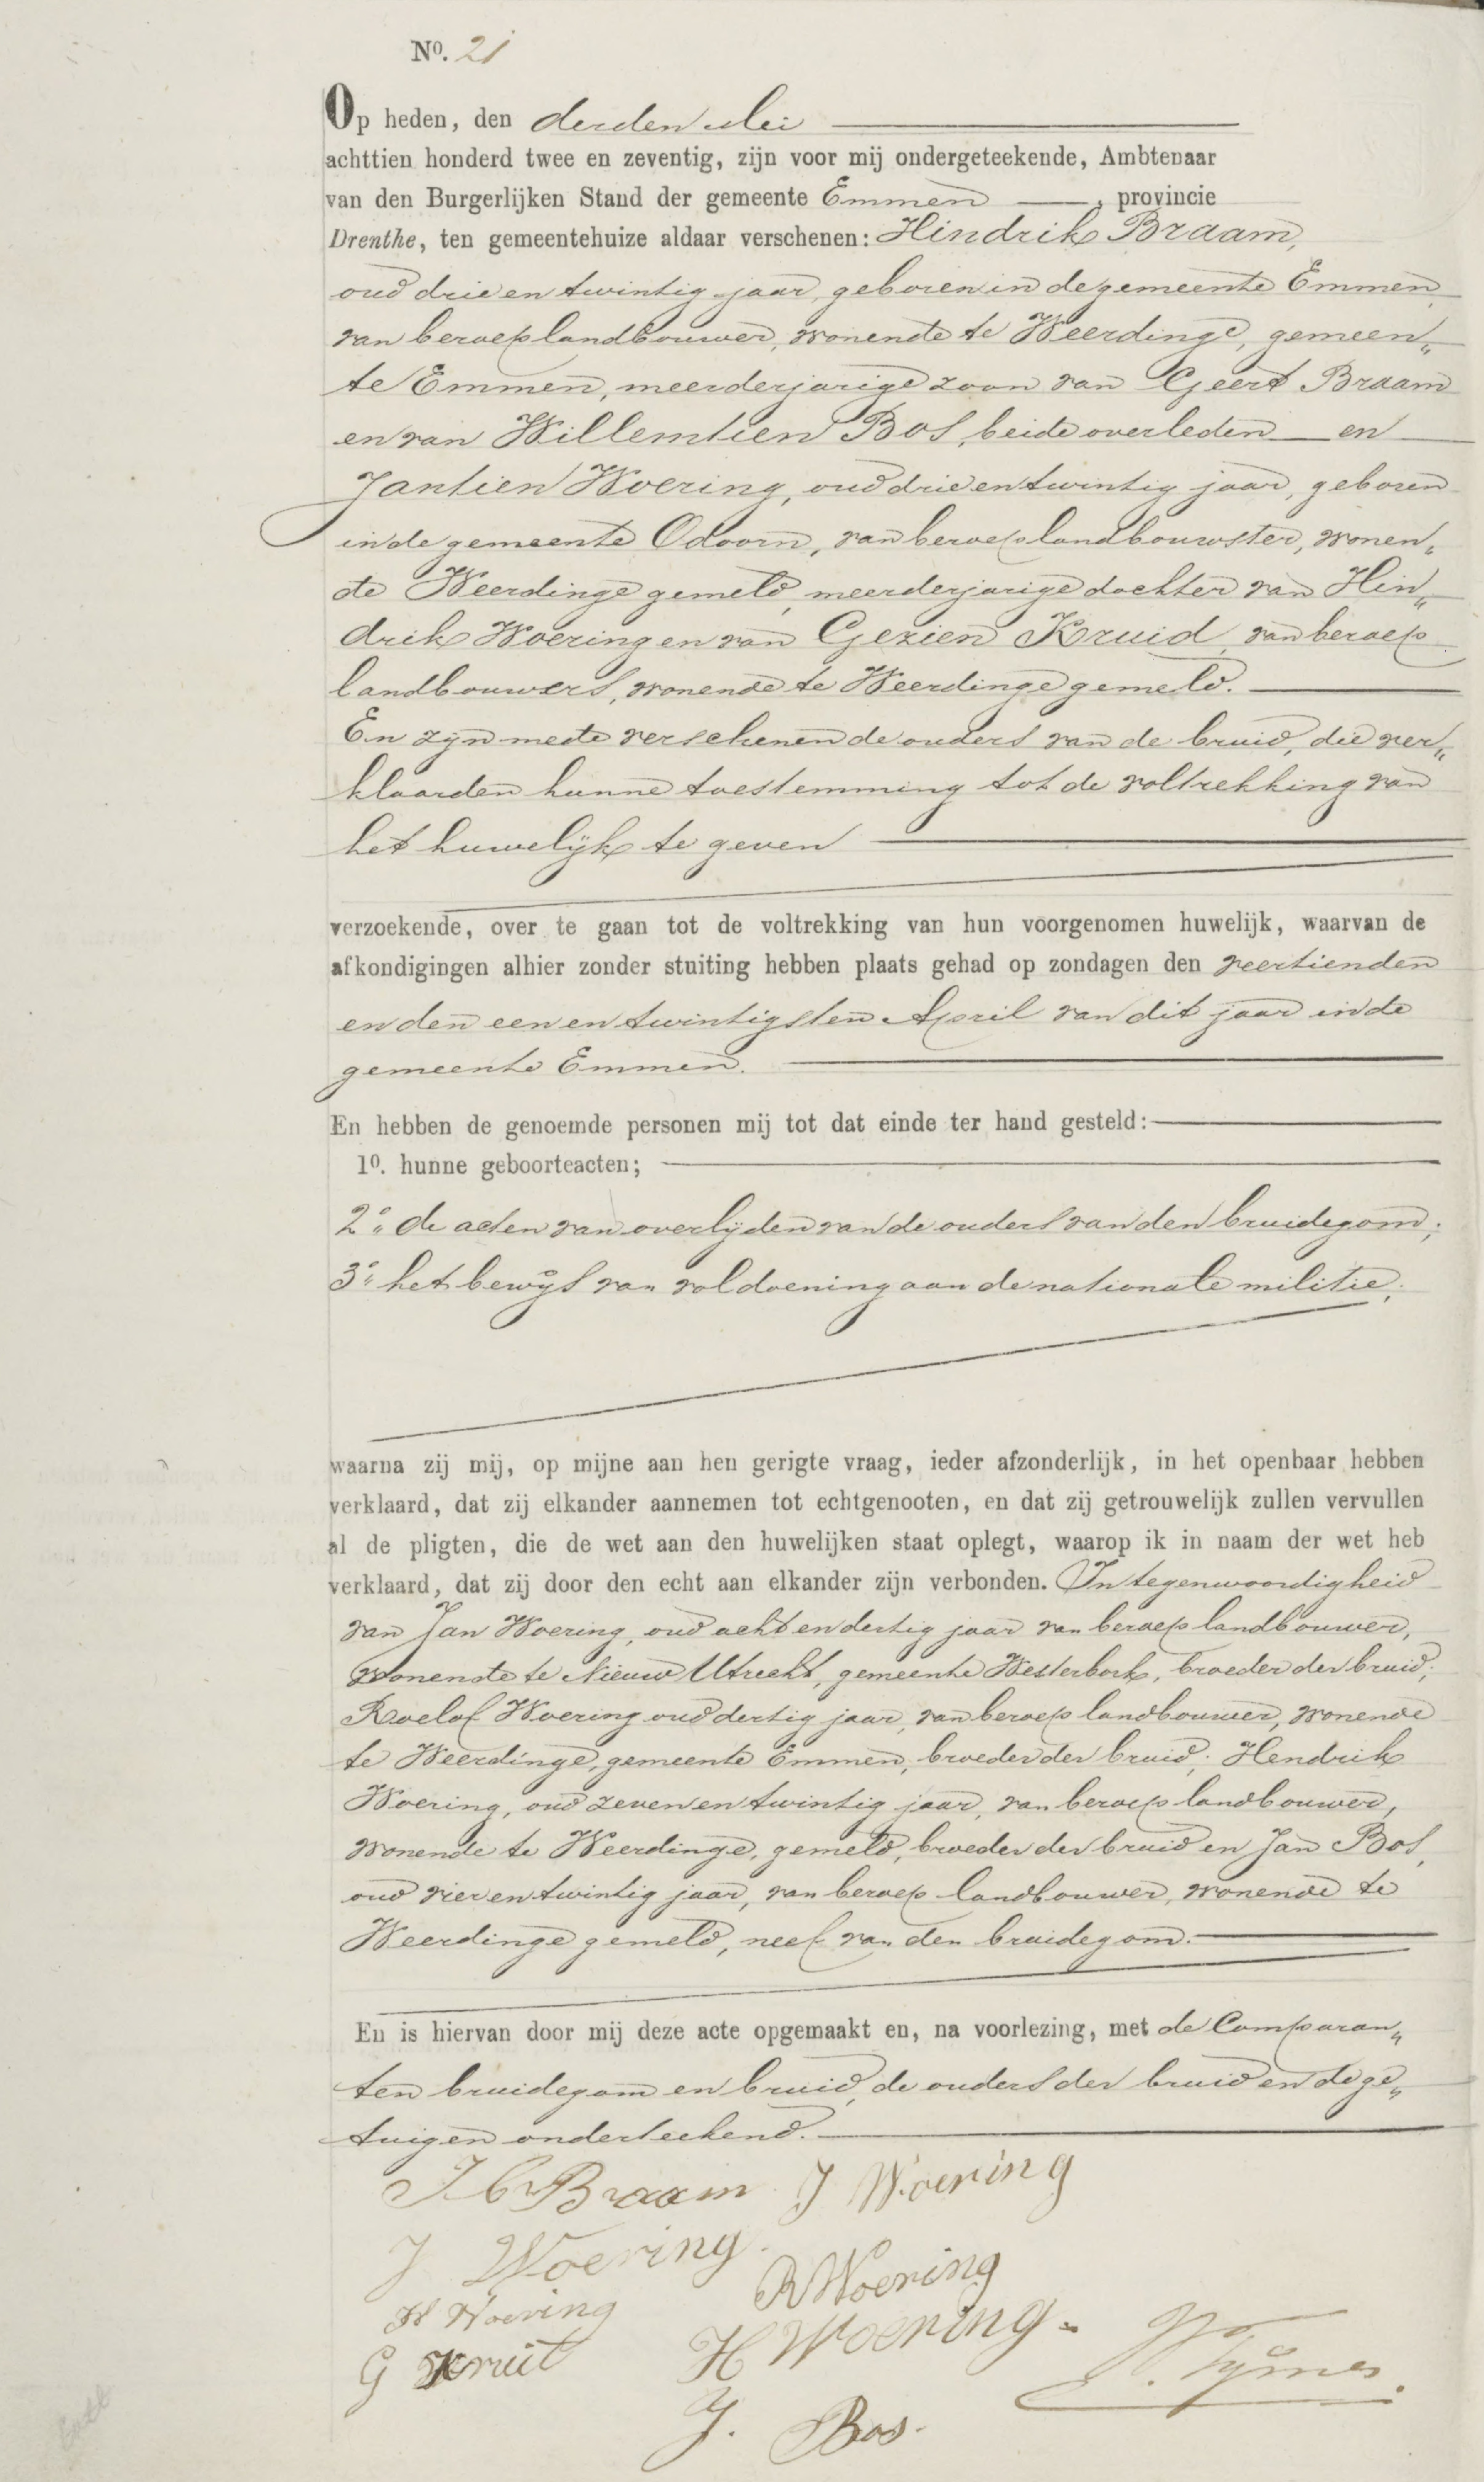 No. 21
Op heden, den derden Mei
achttien honderd twee en zeventig, zijn voor mij ondergeteekende, Ambtenaar
van den Burgerlijken Stand der gemeente Emmen, provincie
Drenthe, ten gemeentehuize aldaar verschenen: Hindrik Braam,
oud drie en twintig jaar, geboren in de gemeente Emmen
van beroep landbouwer, wonende te Weerdinge, gemeen„
te Emmen, meerderjarige zoon van Geert Braam
en van Willemtien Bos, beide overleden en
Jantien Woering, oud drie en twintig jaar, geboren
in de gemeente Odoorn, van beroep landbouwster, wonen„
de Weerdinge gemeld, meerderjarige dochter van Hin„
drik Woering en van Gezien Kruid, van beroep
landbouwers, wonende te Weerdinge gemeld.
En zijn mede verschenen de ouders van de bruid, die ver„
klaarden hunne toestemming tot de voltrekking van
het huwelijk te geven
verzoekende, over te gaan tot de voltrekking van hun voorgenomen huwelijk, waarvan de
afkondigingen alhier zonder stuiting hebben plaats gehad op zondagen den veertienden
en den een en twintigsten April van dit jaar in de
gemeente Emmen.
En hebben de genoemde personen mij tot dat einde ter hand gesteld:
1o. hunne geboorteacten;
2o. de acten van overlijden van de ouders van den bruidegom;
3o. het bewijs van voldoening aan de nationale militie;
waarna zij mij, op mijne aan hen gerigte vraag, ieder afzonderlijk, in het openbaar hebben
verklaard, dat zij elkander aannemen tot echtgenooten, en dat zij getrouwelijk zullen vervullen
al de pligten, die de wet aan den huwelijken staat oplegt, waarop ik in naam der wet heb
verklaard, dat zij door den echt aan elkander zijn verbonden. In tegenwoordigheid
van Jan Woering, oud acht en dertig jaar van beroep landbouwer,
wonende te Nieuw Utrecht, gemeente Westerbork, broeder der bruid;
Roelof Woering oud dertig jaar, van beroep landbouwer, wonende
te Weerdinge, gemeente Emmen, broeder der bruid; Hendrik
Woering, oud zeven en twintig jaar, van beroep landbouwer,
wonende te Weerdinge, gemeld, broeder der bruid en Jan Bos,
oud vier en twintig jaar, van beroep landbouwer, wonende te
Weerdinge gemeld, neef van den bruidegom.
En is hiervan door mij deze acte opgemaakt en, na voorlezing, met de Comparan„
ten bruidegom en bruid, de ouders der bruid en de ge„
tuigen onderteekend.
H Braam J Woering
J Woering.
R Woering
H Woering
H Woering.
G Kruit
Tijmes.
J. Bos.